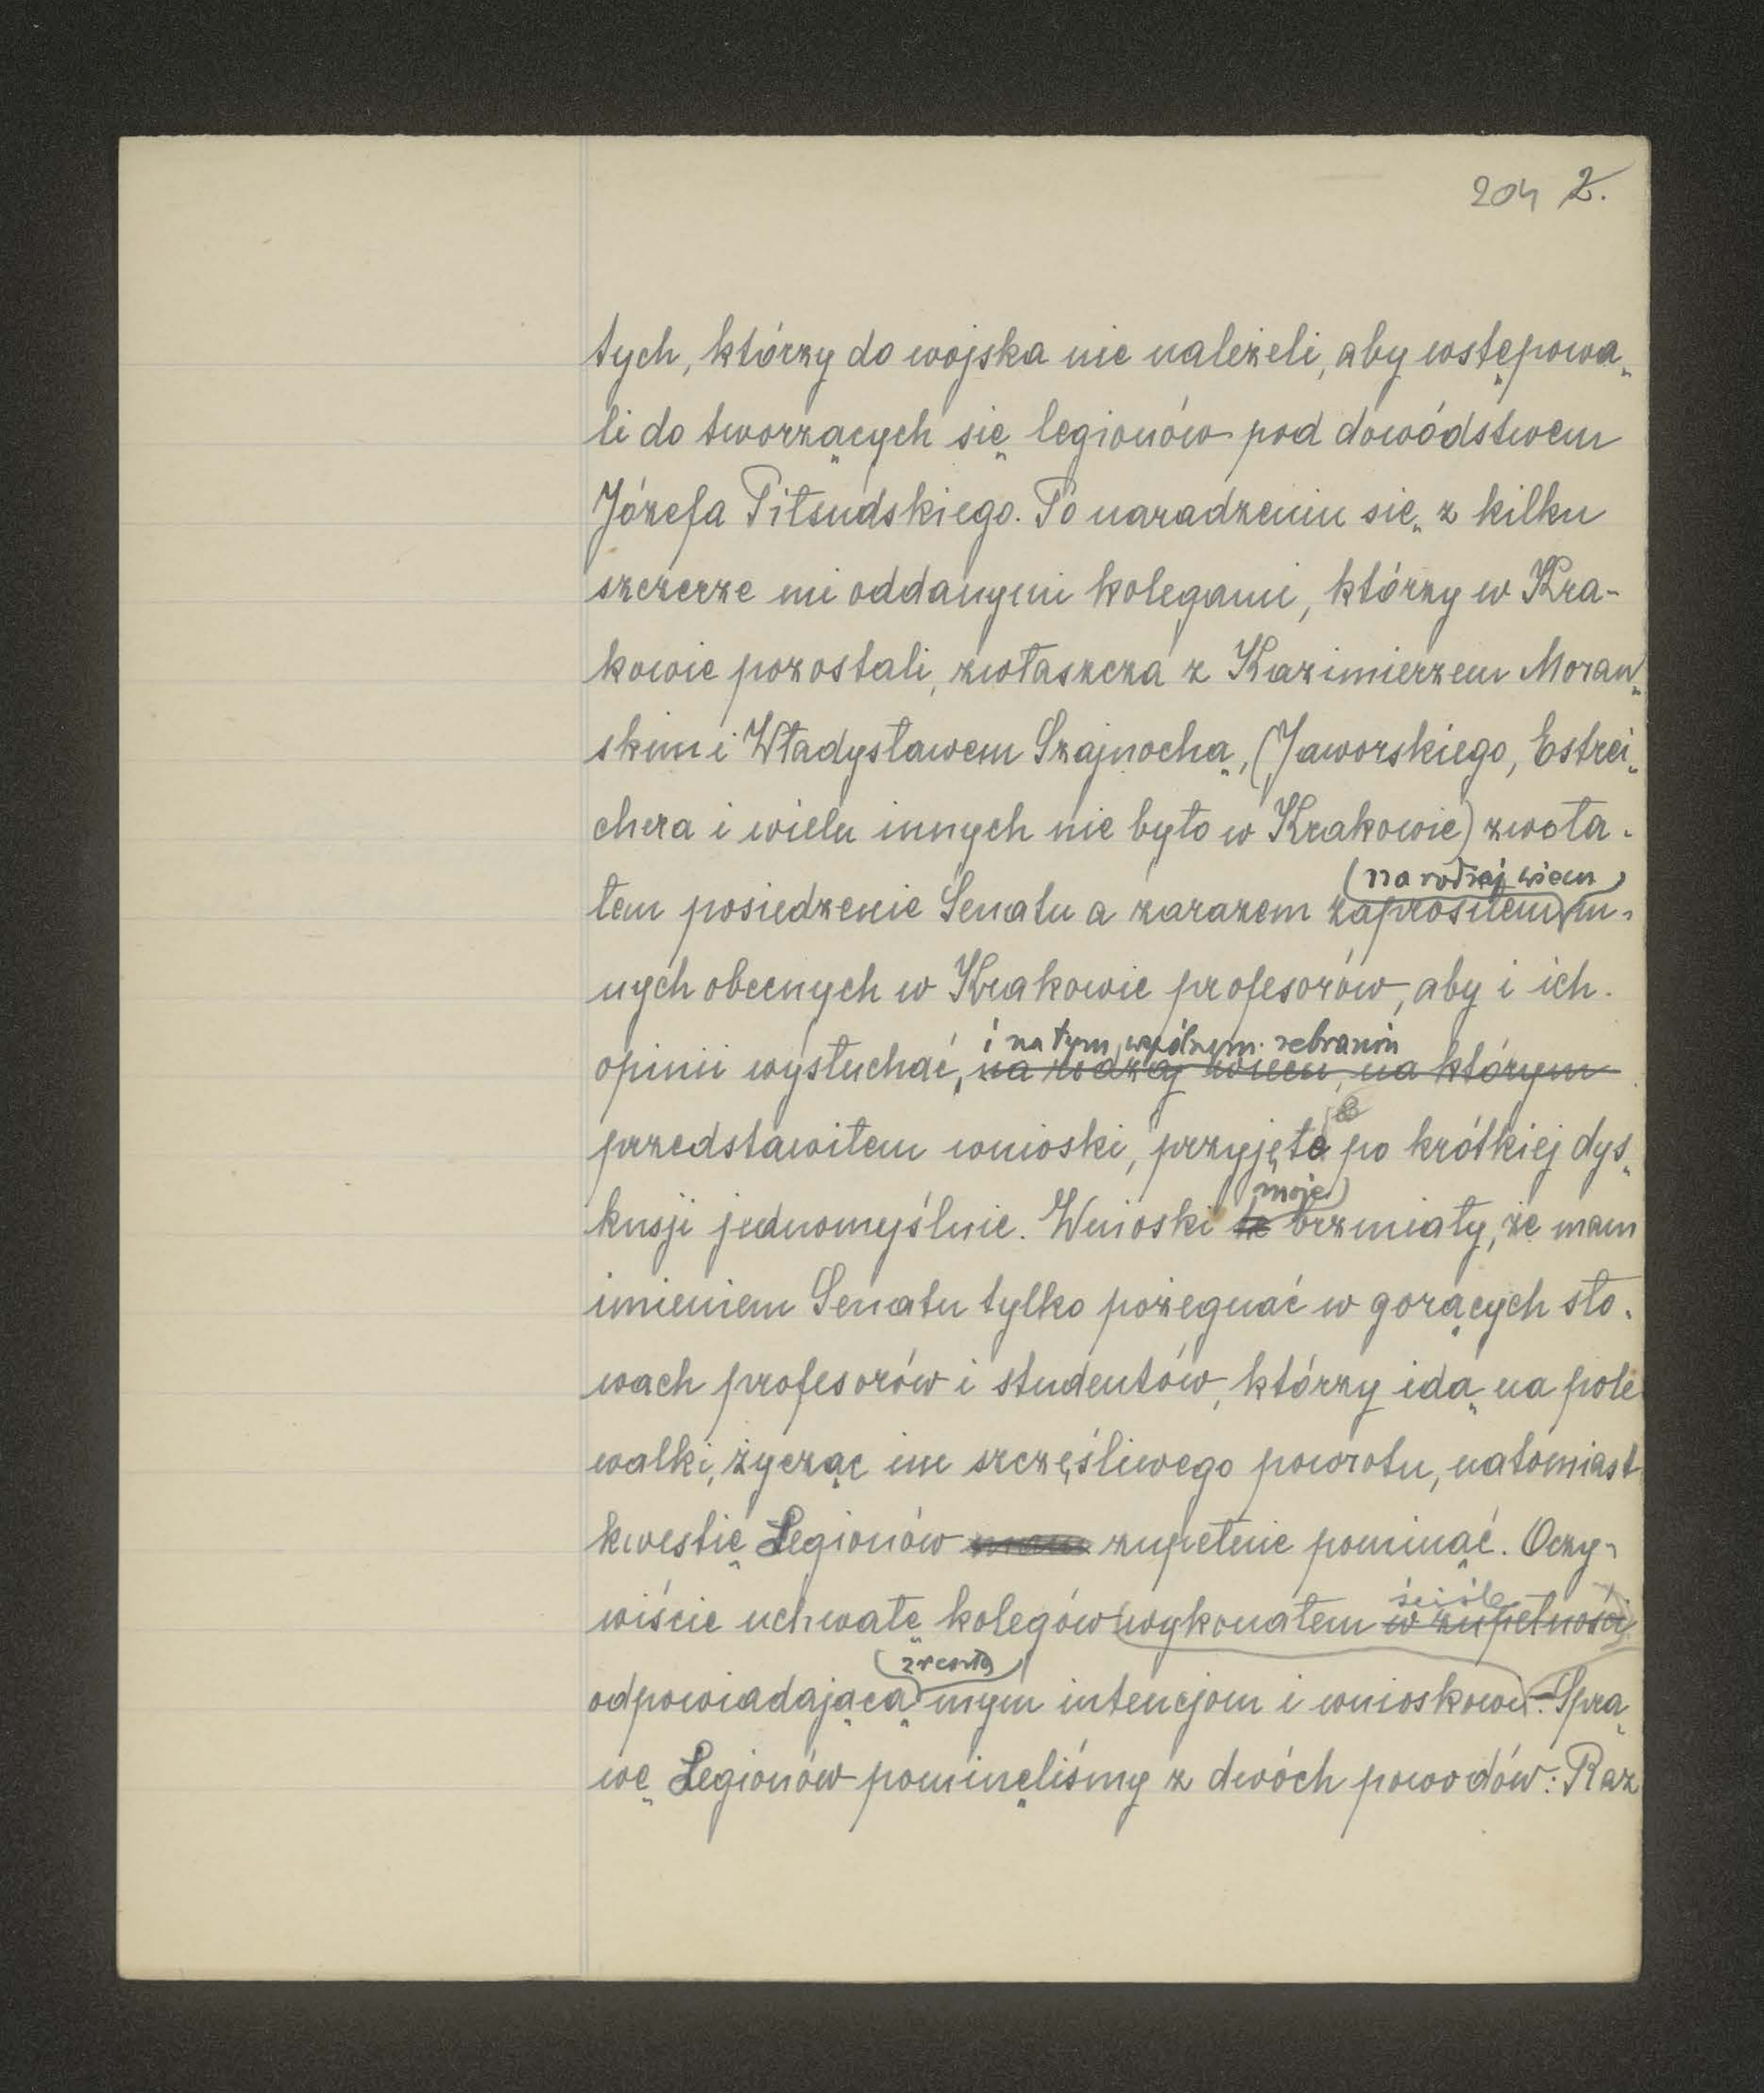 204 2.
tych, którzy do wojska nie należeli, aby wstępowa-
li do tworzących się legionów pod dowództwem
Józefa Piłsudskiego. Po naradzeniu się z kilku
szczerze mi oddanymi kolegami, którzy w Kra-
kowie pozostali, zwłaszcza z Kazimierzem Moraw-
skim i Władysławem Szajnochą, (Jaworskiego, Estrei-
chera i wielu innych nie było w Krakowie) zwoła-
(na rodzaj wiecu)
łem posiedzenie Senatu a zarazem zaprosiłem in-
nych obecnych w Krakowie profesorów, aby i ich
i na tym wspólnym zebraniu
opinii wysłuchać, na rodzaj wiecu, na którym
przedstawiłem wnioski, przyjęte po krótkiej dys-
moje
kusji jednomyślnie. Wnioski te brzmiały, że mam
imieniem Senatu tylko pożegnać w gorących sło-
wach profesorów i studentów, którzy idą na pole
walki, życząc im szczęśliwego powrotu, natomiast
kwestię Legionów mam zupełnie pominąć. Oczy-
ściśle
wiście uchwałę kolegów wykonałem w zupełności
zresztą
odpowiadającą mym intencjom i wnioskowi. Spra-
wę Legionów pominęliśmy z dwóch powodów: Raz